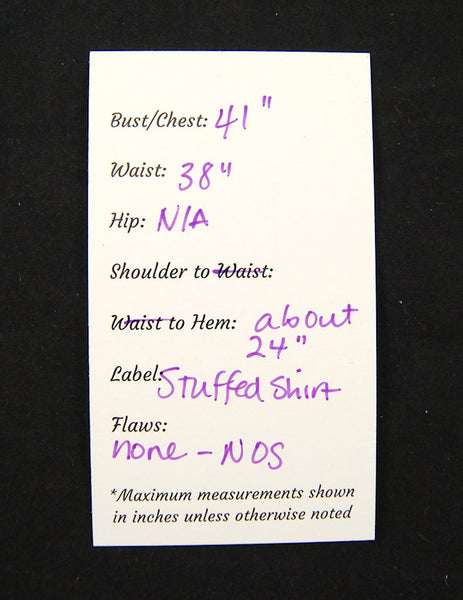 Bust/Chest: 41"
Waist: 38"
Hip: N/A
Shoulder to Waist:
Waist to Hem: about
24"
Label: Stuffed Shirt
Flaws:
none - NOS
*Maximum measurements shown
in inches unless otherwise noted